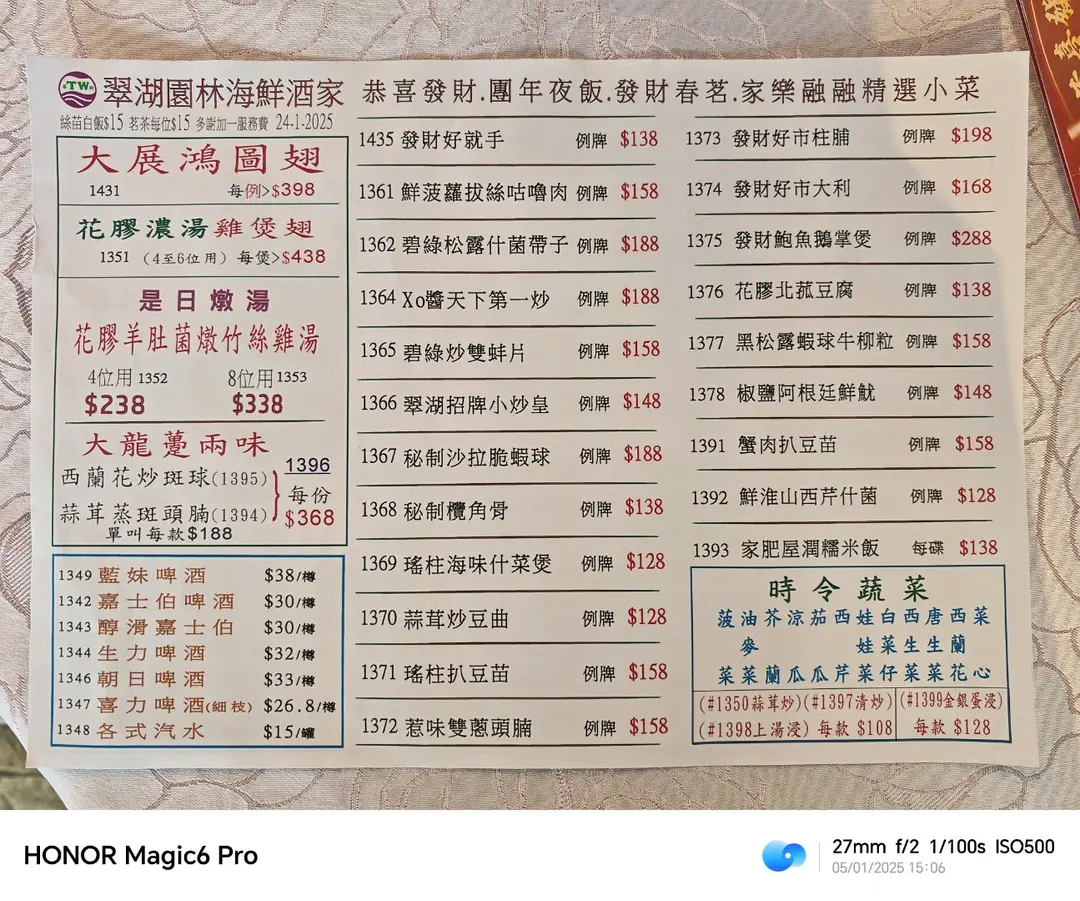 TW
翠湖園林海鮮酒家
恭喜發財.團年夜飯.發財春茗.家樂融融精選小菜
絲苗白飯$15 茗茶每位$15 多謝加一服務費 24-1-2025
大展鴻圖翅
1431 每例>$398
花膠濃湯雞煲翅
1351 (4至6位用) 每煲>$438
是日燉湯
花膠羊肚菌燉竹絲雞湯
4位用1352 8位用1353
$238 $338
大龍躉兩味
西蘭花炒斑球(1395)
蒜茸蒸斑頭腩(1394)
1396
每份
$368
單叫每款$188
1349 藍妹啤酒 $38/樽
1342 嘉士伯啤酒 $30/樽
1343 醇滑嘉士伯 $30/樽
1344 生力啤酒 $32/樽
1346 朝日啤酒 $33/樽
1347 喜力啤酒(細枝) $26.8/樽
1348 各式汽水 $15/罐
1435 發財好就手 例牌 $138
1361 鮮菠蘿拔絲咕嚕肉 例牌 $158
1362 碧綠松露什菌帶子 例牌 $188
1364 Xo醬天下第一炒 例牌 $188
1365 碧綠炒雙蚌片 例牌 $158
1366 翠湖招牌小炒皇 例牌 $148
1367 秘制沙拉脆蝦球 例牌 $188
1368 秘制欖角骨 例牌 $138
1369 瑤柱海味什菜煲 例牌 $128
1370 蒜茸炒豆曲 例牌 $128
1371 瑤柱扒豆苗 例牌 $158
1372 惹味雙蔥頭腩 例牌 $158
1373 發財好市柱脯 例牌 $198
1374 發財好市大利 例牌 $168
1375 發財鮑魚鵝掌煲 例牌 $288
1376 花膠北菰豆腐 例牌 $138
1377 黑松露蝦球牛柳粒 例牌 $158
1378 椒鹽阿根廷鮮魷 例牌 $148
1391 蟹肉扒豆苗 例牌 $158
1392 鮮淮山西芹什菌 例牌 $128
1393 家肥屋潤糯米飯 每碟 $138
時令蔬菜
菠油芥涼茄西娃白西唐西菜
麥 娃菜生生蘭
菜菜蘭瓜瓜芹菜仔菜菜花心
(#1350蒜茸炒)(#1397清炒)
(#1398上湯浸) 每款 $108
(#1399金銀蛋浸)
每款 $128
HONOR Magic6 Pro
27mm f/2 1/100s ISO500
05/01/2025 15:06